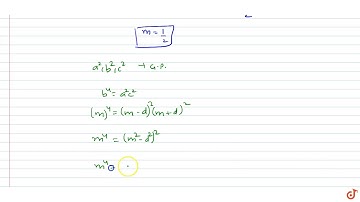 m = 1/2
a², b², c² → G.P.
b⁴ = a²c²
(m)⁴ = (m-d)²(m+d)²
m⁴ = (m²-d²)²
m⁴ =